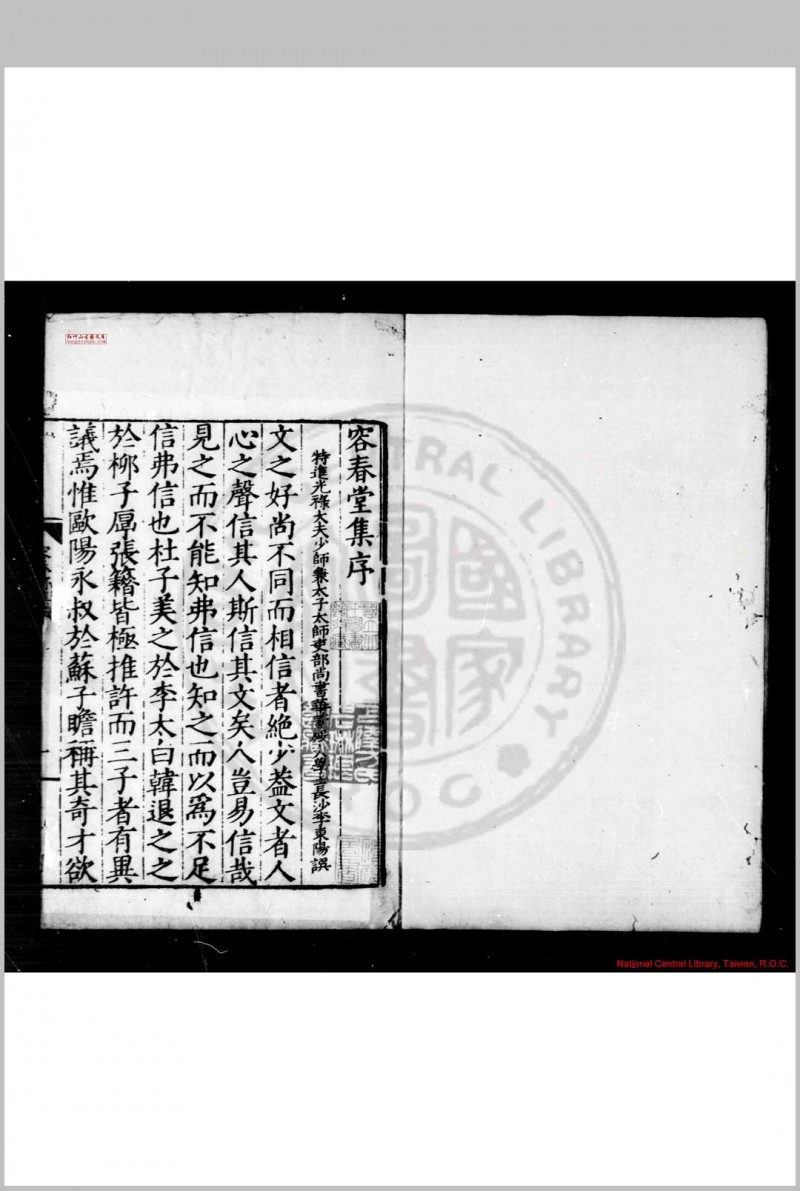 容春堂集序
特進光祿大夫少師兼太子太師吏部尚書華蓋殿大學士長沙李東陽譔
文之好尚不同而相信者絶少葢文者人
心之聲信其人斯信其文矣人豈易信哉
見之而不能知弗信也知之而以爲不足
信弗信也杜子美之於李太白韓退之之
於柳子厚張籍皆極推許而三子者有異
議焉惟歐陽永叔於蘇子瞻稱其奇才欲
CENTRAL LIBRARY
國家圖書
R.O.C.
National Central Library, Taiwan, R.O.C.